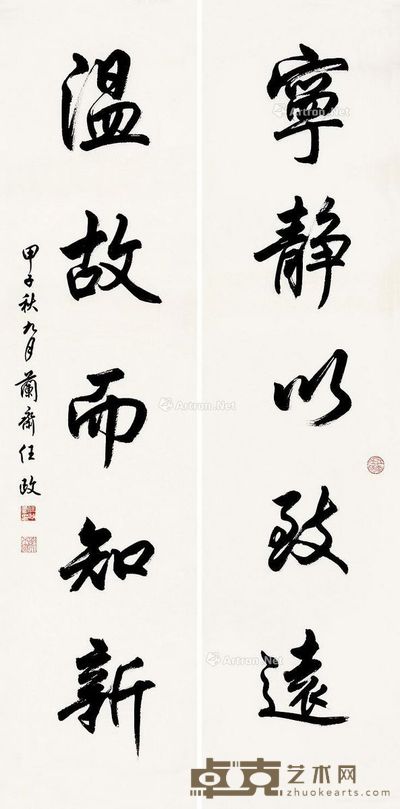 寧靜以致遠
溫故而知新
甲子秋九月蘭齋任政
Artron.Net
Artron.Net
Artron.Net
Artron.Net
卓克艺术网
zhuokearts.com